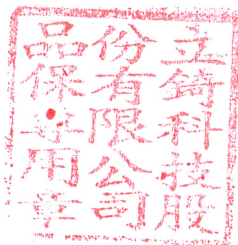 立錡科技股
份有限公司
品保專用章